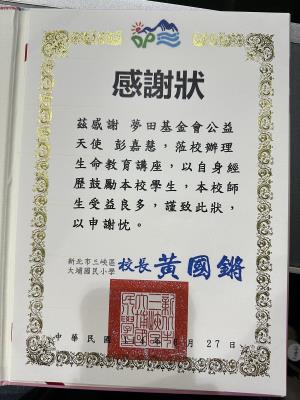 感謝狀
茲感謝 夢田基金會公益
天使 彭嘉慧，蒞校辦理
生命教育講座，以自身經
歷鼓勵本校學生，本校師
生受益良多，謹致此狀，
以申謝忱。
新北市三峽區
大埔國民小學 校長 黃國鏘
中華民國 月27日